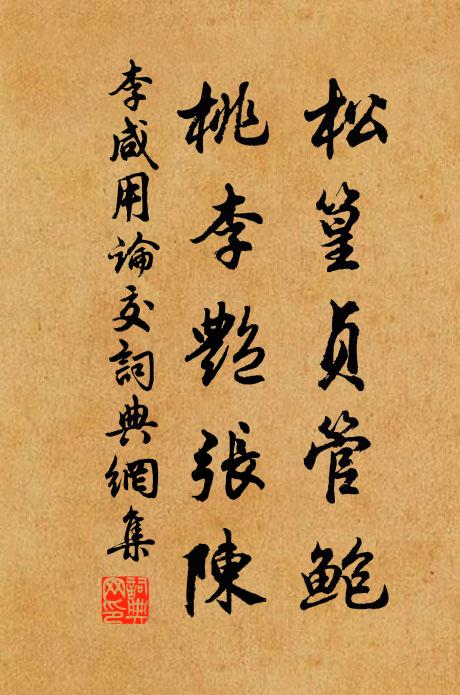 松篁貞管鮑
桃李艷張陳
李咸用論交詞典網集
詞典網印